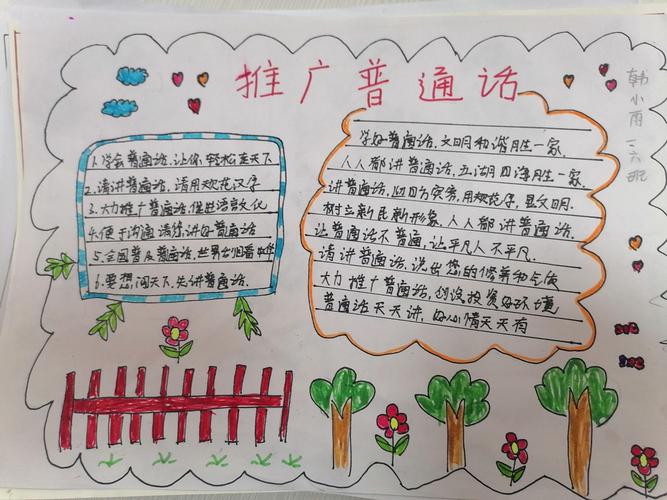 推广普通话
韩小雨 一六班
1.学会普通话,让你轻松走天下
2.请讲普通话,请用规范汉字
3.大力推广普通话,促进语言文化
4.便于沟通 请您讲好普通话
5.全国普及普通话,世界
6.要想闯天下,先讲普通话.
学好普通话,文明和谐胜一家.
人人都讲普通话,五湖四海胜一家.
讲普通话,用规范字,显文明.
树立新民新形象,人人都讲普通话.
让普通话不普通,让平凡人不平凡.
请讲普通话,说出您的优美和气质
大力推广普通话,创设投资好环境
普通话天天讲,好心情天天有